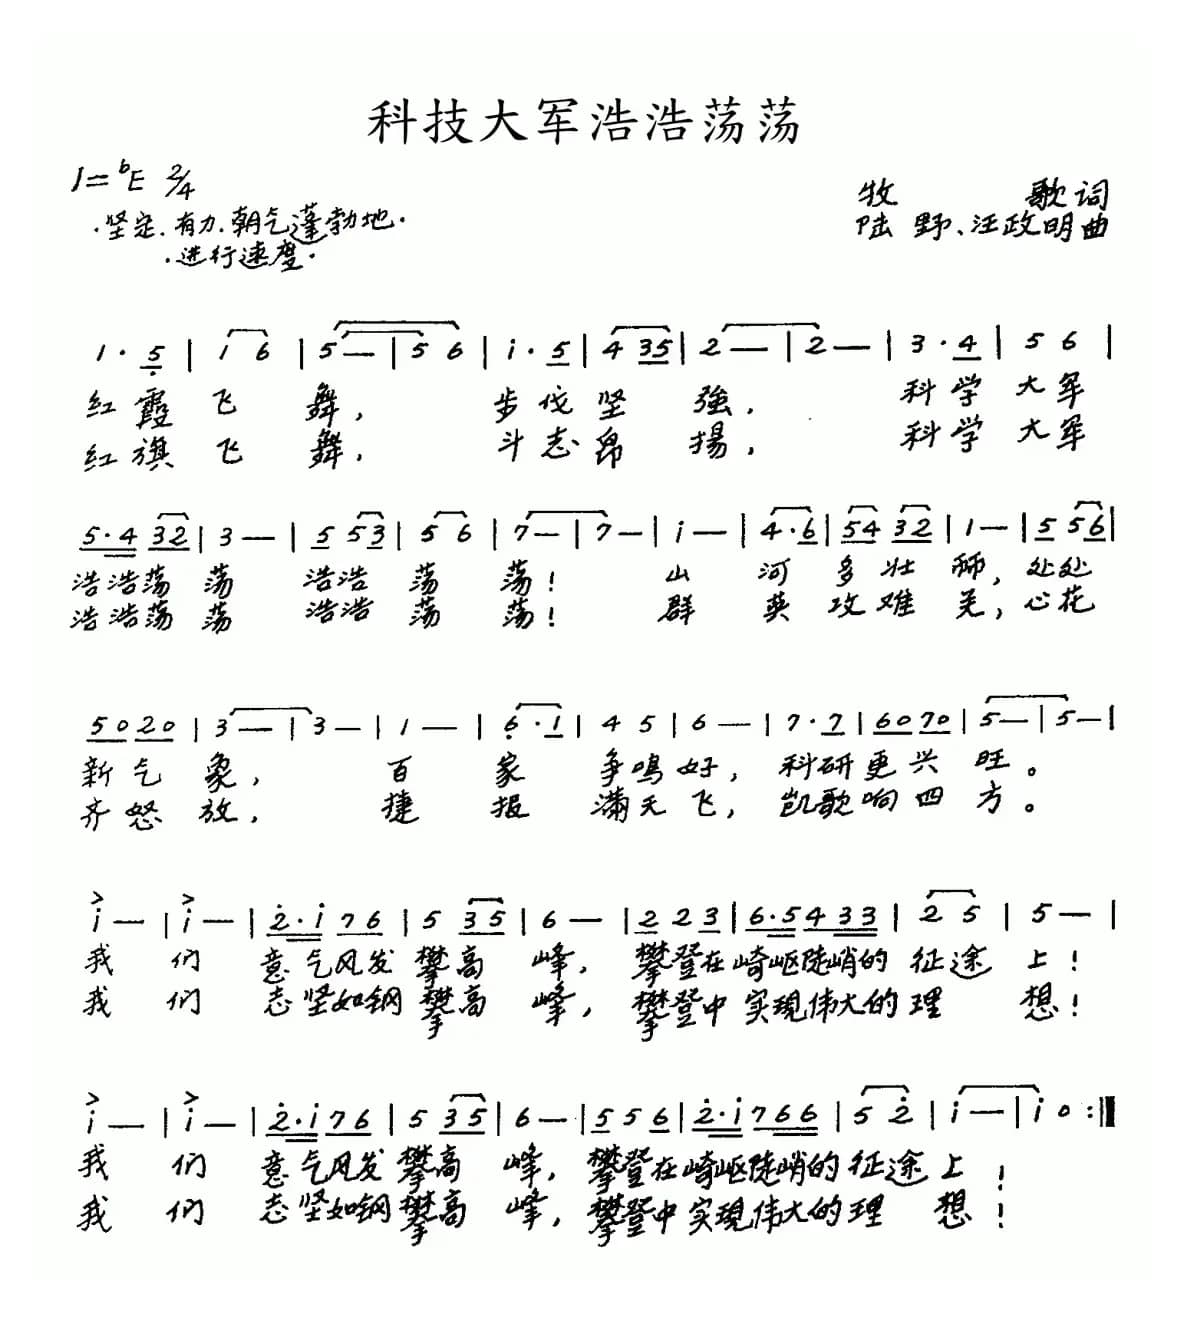 科技大军浩浩荡荡
1=♭E 2/4
牧 歌词
·坚定、有力、朝气蓬勃地·
陆 野、汪政明曲
·进行速度·
1· 5 | 1 6 | 5 — | 5 6 | i· 5 | 4 35 | 2 — | 2 — | 3· 4 | 5 6 |
红霞飞 舞, 步伐坚 強, 科学 大军
红旗飞 舞, 斗志昂 揚, 科学 大军
5·4 32 | 3 — | 5 53 | 5 6 | 7 — | 7 — | i — | 4·6 | 54 32 | 1 — | 5 56 |
浩浩荡 荡 浩浩 荡 荡! 山 河 多 壮 丽, 处处
浩浩荡 荡 浩浩 荡 荡! 群 英 攻 难 关, 心花
5020 | 3 — | 3 — | 1 — | 6·1 | 4 5 | 6 — | 7·7 | 6070 | 5 — | 5 — |
新气 象, 百 家 争鸣好, 科研更兴 旺。
齐怒 放, 捷 报 满天飞, 凯歌响四 方。
i — | i — | 2·i 76 | 5 35 | 6 — | 2 2 3 | 6·5 4 33 | 2 5 | 5 — |
我 们 意气风发 攀高 峰, 攀登在崎岖陡峭的 征途 上!
我 们 志坚如钢 攀高 峰, 攀登中实現伟大的理 想!
i — | i — | 2·i 76 | 5 35 | 6 — | 5 5 6 | 2·i 766 | 5 2 | i — | i 0 :‖
我 们 意气风发攀高 峰, 攀登在崎岖陡峭的征途上!
我 们 志坚如钢攀高 峰, 攀登中实現伟大的理 想!